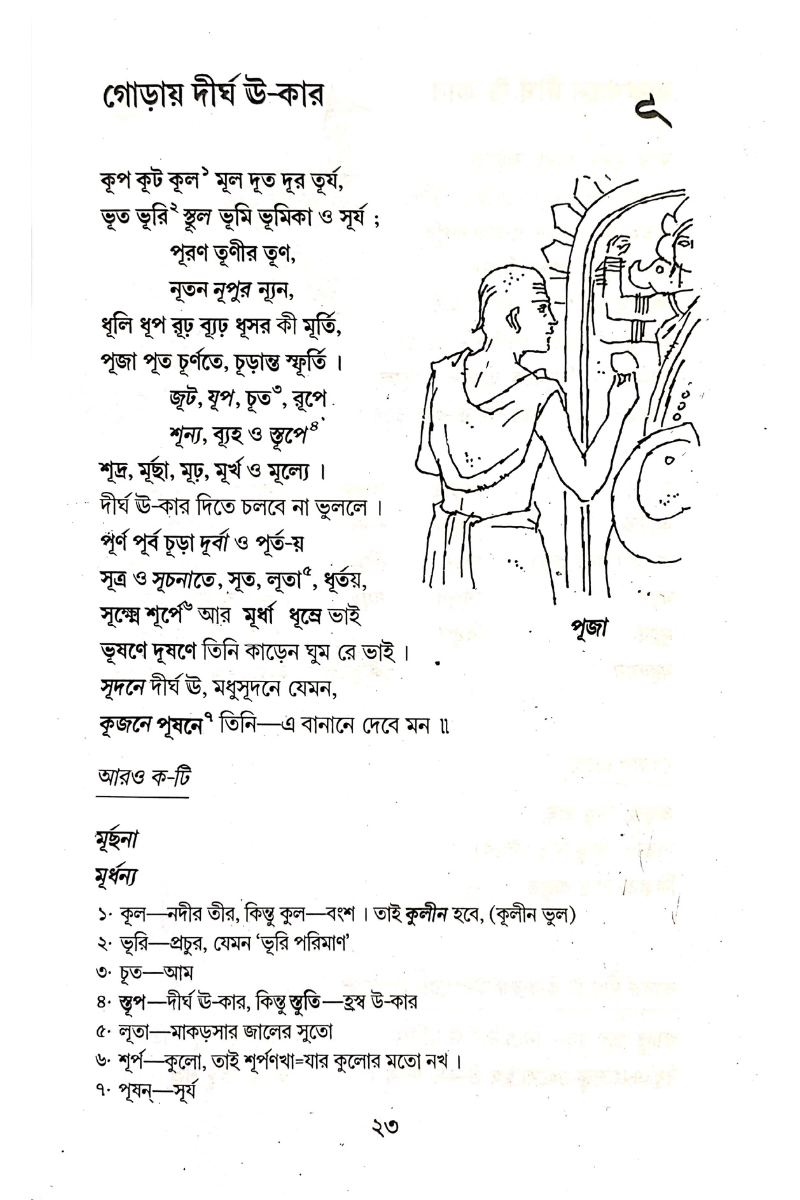 গোড়ায় দীর্ঘ ঊ-কার
ূ
কূপ কূট কূল১ মূল দূত দূর তূর্য,
ভূত ভূরি২ স্থূল ভূমি ভূমিকা ও সূর্য ;
পূরণ তূণীর তূণ,
নূতন নূপুর ন্যূন,
ধূলি ধূপ রূঢ় ব্যূঢ় ধূসর কী মূর্তি,
পূজা পূত চূর্ণতে, চূড়ান্ত স্ফূর্তি ।
জূট, যূপ, চূত৩, রূপে
শূন্য, ব্যূহ ও স্তূপে৪
শূদ্র, মূর্ছা, মূঢ়, মূর্খ ও মূল্যে ।
দীর্ঘ ঊ-কার দিতে চলবে না ভুললে ।
পূর্ণ পূর্ব চূড়া দূর্বা ও পূর্ত-য়
সূত্র ও সূচনাতে, সূত, লূতা৫, ধূর্তয়,
সূক্ষ্মে শূর্পে৬ আর মূর্ধা ধূম্রে ভাই
ভূষণে দূষণে তিনি কাড়েন ঘুম রে ভাই ।
সূদনে দীর্ঘ ঊ, মধুসূদনে যেমন,
কূজনে পূষনে৭ তিনি—এ বানানে দেবে মন ॥
পূজা
আরও ক-টি
মূর্ছনা
মূর্ধন্য
১· কূল—নদীর তীর, কিন্তু কুল—বংশ । তাই কুলীন হবে, (কূলীন ভুল)
২· ভূরি—প্রচুর, যেমন ‘ভূরি পরিমাণ’
৩· চূত—আম
৪· স্তূপ—দীর্ঘ ঊ-কার, কিন্তু স্তুতি—হ্রস্ব উ-কার
৫· লূতা—মাকড়সার জালের সুতো
৬· শূর্প—কুলো, তাই শূর্পণখা=যার কুলোর মতো নখ ।
৭· পূষন্—সূর্য
২৩